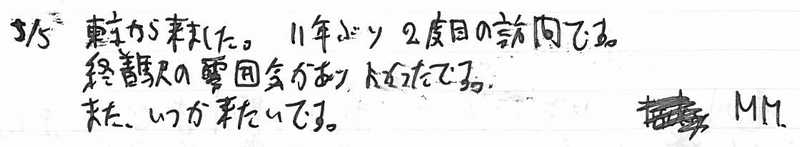 5/5 東京から来ました。 11年ぶり 2度目の訪問です。
終着駅の雰囲気があり よかったです。
また、いつか来たいです。
M.M.